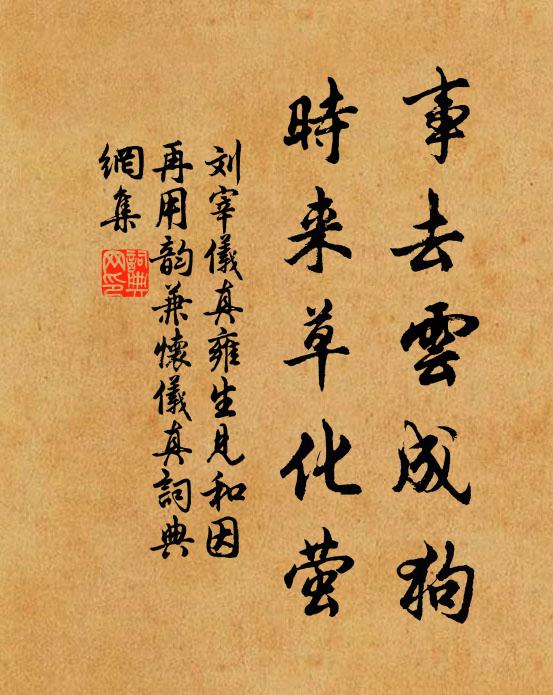 事去雲成狗
時来草化萤
刘宰儀真雍生見和因
再用韵兼懷儀真詞典
網集
詞典网印